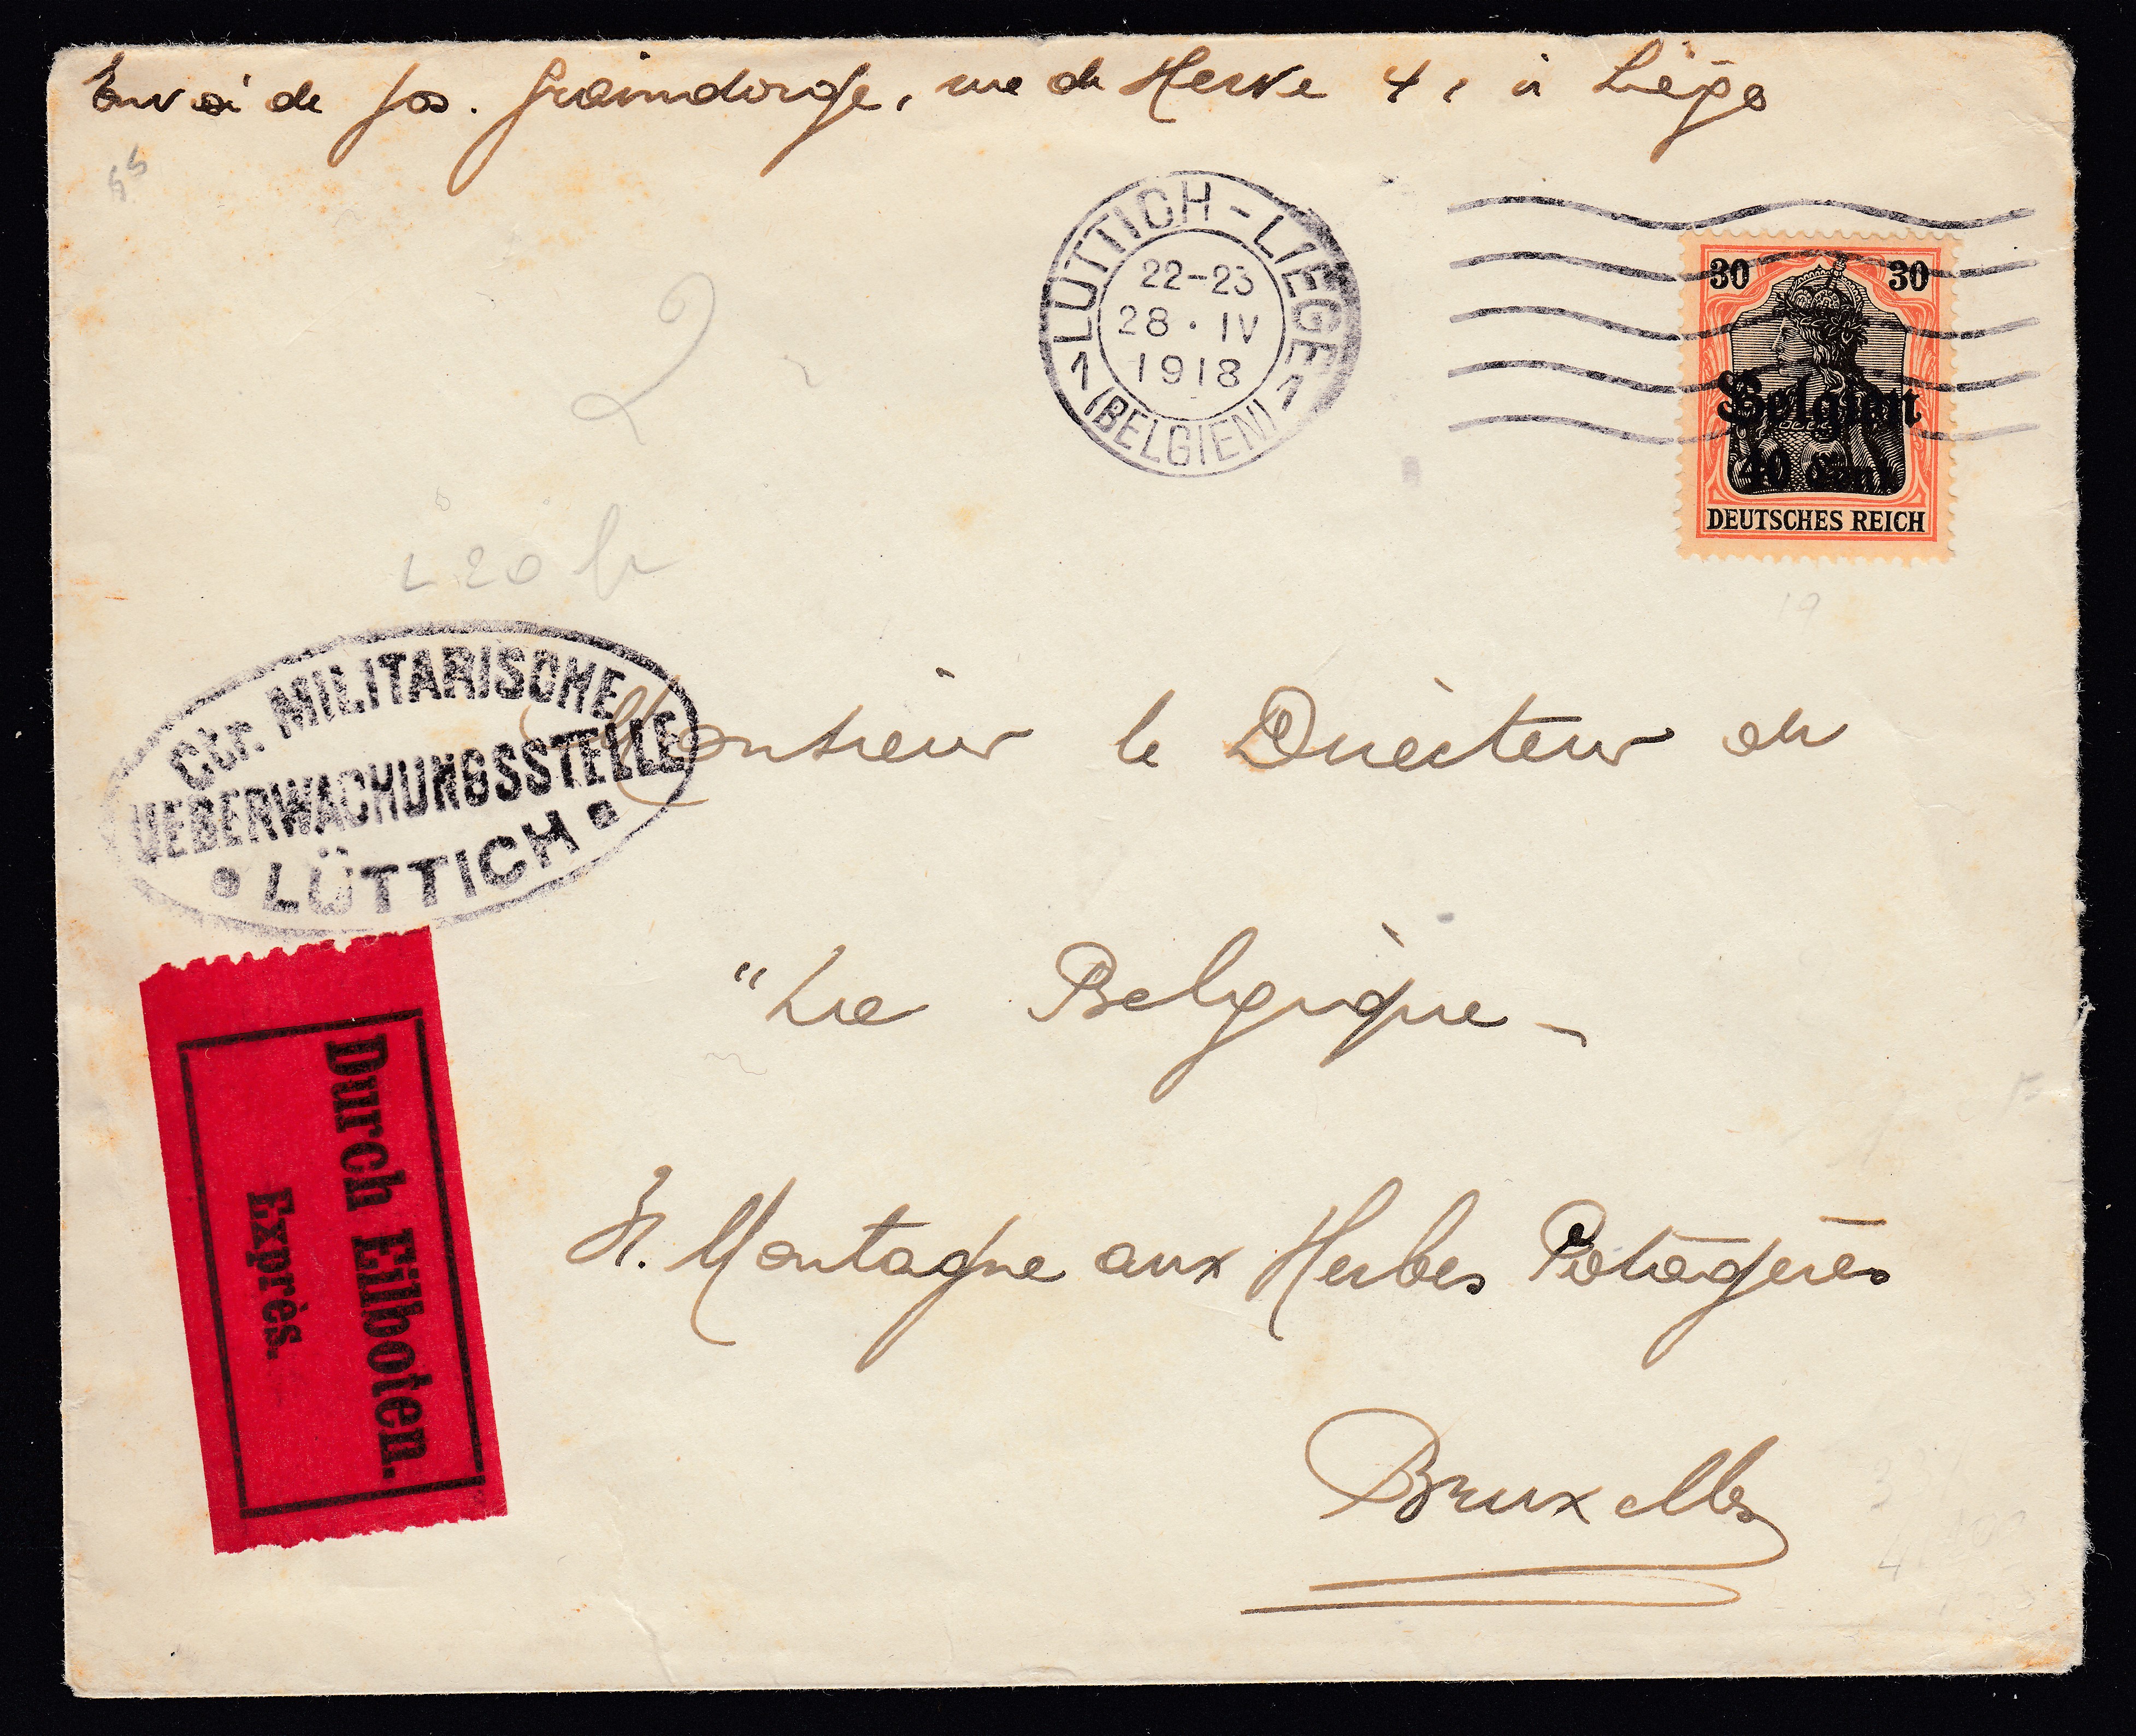 Envoi de Jos. Graindorge, rue de Herve 41 à Liège
LÜTTICH - LIÈGE
22-23
28 · IV
1918
1 (BELGIEN) 1
30 30
Belgien
40 Cent
DEUTSCHES REICH
20 fr
Ctr. MILITÄRISCHE
UEBERWACHUNGSSTELLE
LÜTTICH
Monsieur le Directeur de
"La Belgique -
Montagne aux Herbes Potagères
Bruxelles
Durch Eilboten.
Exprès.